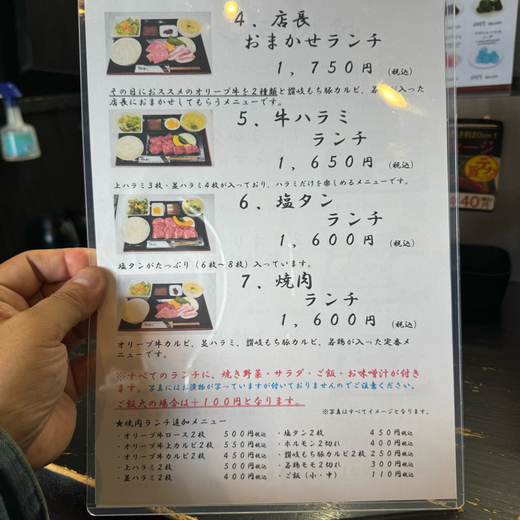 4．店長
おまかせランチ
1，750円（税込）
その日におススメのオリーブ牛を2種類と讃岐もち豚カルビ、若鶏が入った
店長におまかせしてもらうメニューです。
5．牛ハラミ
ランチ
1，650円（税込）
上ハラミ3枚・並ハラミ4枚が入っており、ハラミだけを楽しめるメニューです。
6．塩タン
ランチ
1，600円（税込）
塩タンがたっぷり（6枚～8枚）入っています。
7．焼肉
ランチ
1，600円（税込）
オリーブ牛カルビ、並ハラミ、讃岐もち豚カルビ、若鶏が入った定番メ
ニューです。
※すべてのランチに、焼き野菜・サラダ・ご飯・お味噌汁が付きます。
写真にはお漬物が写っていますが付いておりませんのでご注意ください。
ご飯大の場合は＋100円となります。
※写真はすべてイメージとなります。
★焼肉ランチ追加メニュー
・オリーブ牛ロース2枚 500円税込
・オリーブ牛上カルビ2枚 550円税込
・オリーブ牛カルビ2枚 450円税込
・上ハラミ2枚 500円税込
・並ハラミ2枚 400円税込
・塩タン2枚 450円税込
・ホルモン2切れ 400円税込
・讃岐もち豚カルビ2枚 250円税込
・若鶏モモ2切れ 300円税込
・ご飯（小・中） 110円税込